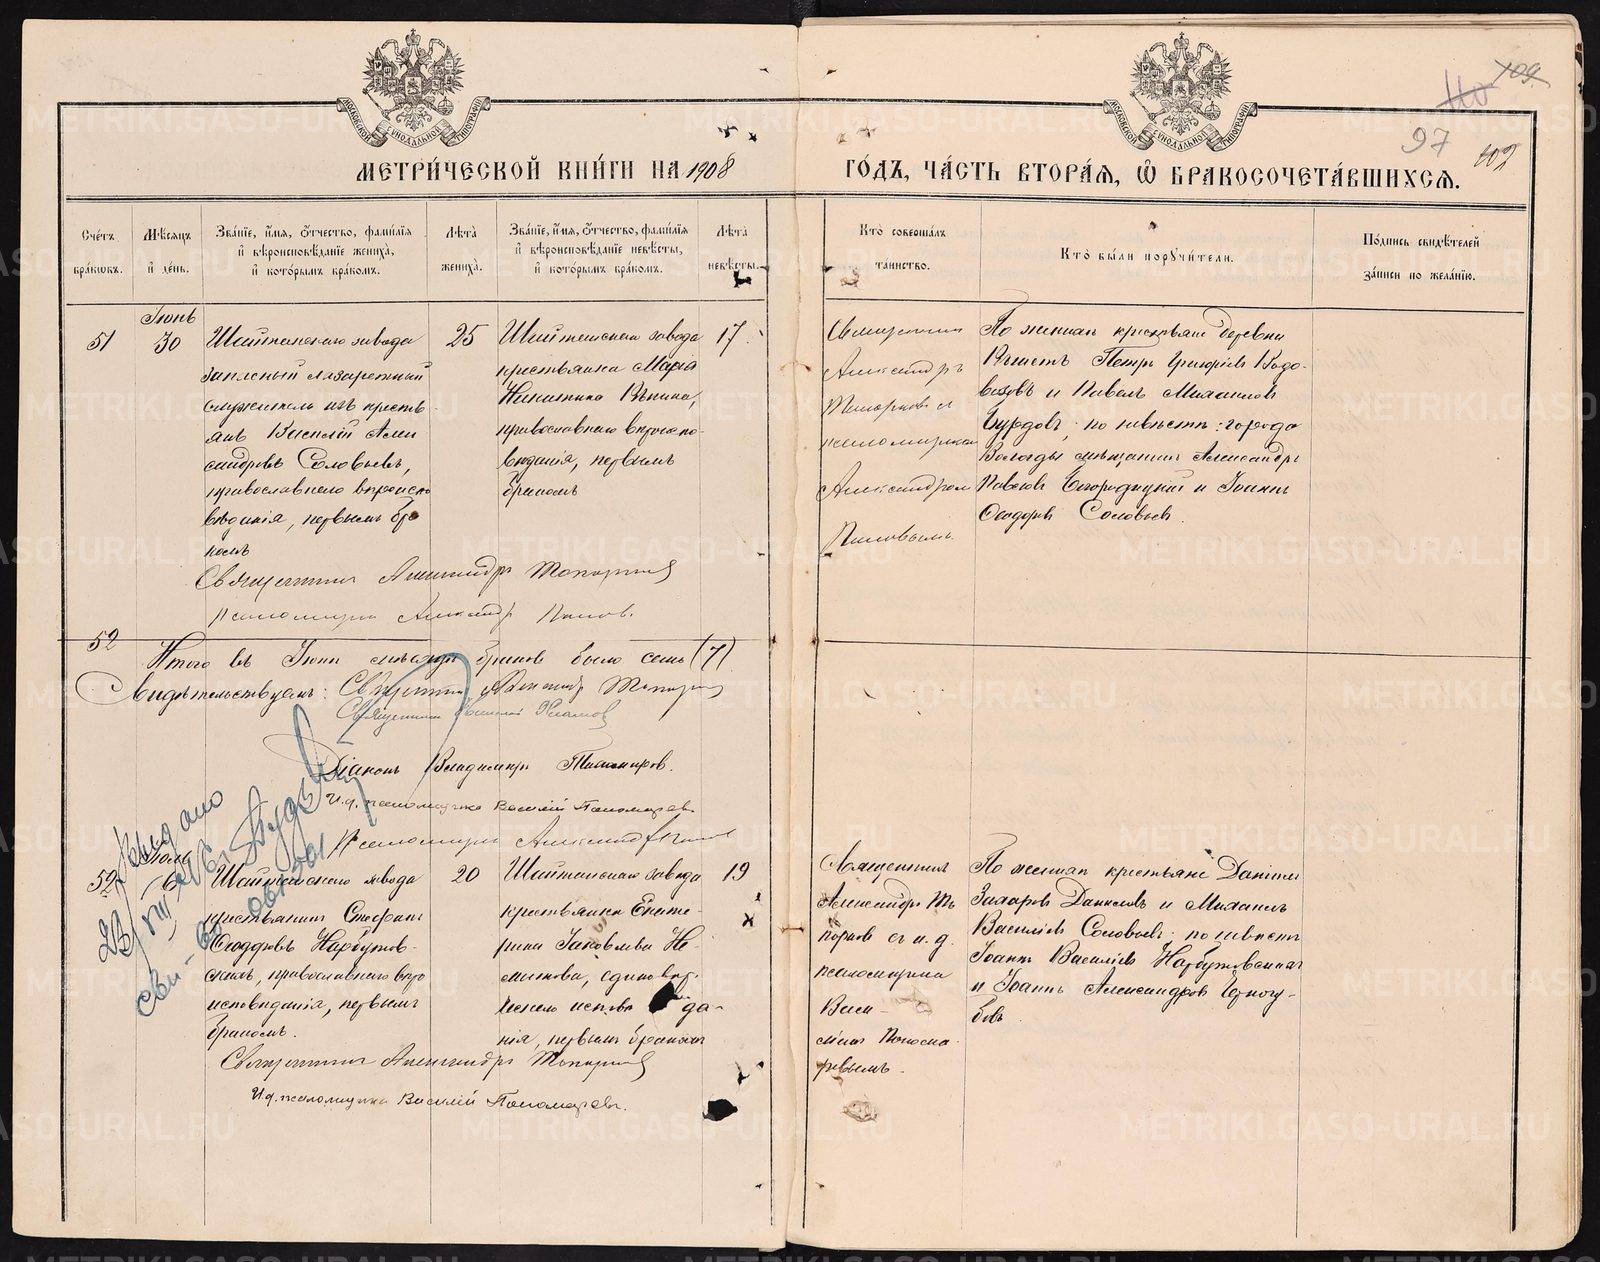 МЕТРИ́ЧЕСКОЙ КНИ́ГИ НА 1908
ГО́ДЪ, ЧА́СТЬ ВТОРА́Ѧ, Ѽ БРАКОСОЧЕТА́ВШИХСѦ.
109.
110
97
102
Сче́тъ бра́кѡвъ.
Мѣ́сѧцъ и҆ де́нь.
Зва́нїе, и҆́мѧ, ѻ҆́тчество, фамилїѧ
и҆ вѣроисповѣ́данїе жениха̀,
и҆ кото́рымъ бра́комъ.
Лѣта̀ жениха̀.
Зва́нїе, и҆́мѧ, ѻ҆́тчество, фамилїѧ
и҆ вѣроисповѣ́данїе невѣ́сты,
и҆ кото́рымъ бра́комъ.
Лѣта̀ невѣ́сты.
Кто̀ соверша́лъ та́инство.
Кто̀ бы́ли порꙋчи́тели.
По́дпись свидѣ́телей
за́писи по жела́нїю.
51
Іюнь
30
Шайтанскаго завода
запасный лазаретный
служитель изъ кресть-
янъ Василій Алек
сандровъ Соловьевъ,
православнаго вѣроиспо
вѣданія, первымъ бра
комъ
25
Шайтанскаго завода
крестьянка Марія
Никитина Вѣкина,
православнаго вѣроиспо-
вѣданія, первымъ
бракомъ
17.
Священникъ
Александръ
Топорковъ съ
псаломщикомъ
Александромъ
Поповымъ.
По женихѣ крестьяне деревни
Петръ Григоріевъ Водо-
возовъ и Павелъ Михаиловъ
Бурдовъ; по невѣстѣ: города
Вологды мѣщанинъ Александръ
Павловъ и Іоаннъ
Ѳеодоровъ Соловьевъ.
Священникъ Александръ Топорковъ
Псаломщикъ Александръ Поповъ.
52
Итого въ Іюнѣ мѣсяцѣ браковъ было семь (7)
Свидѣтельствуемъ: Священникъ Александръ Топорковъ
Священникъ
Діаконъ Владимиръ Тихомировъ.
И.д. псаломщика Василій Пономаревъ.
Псаломщикъ Александръ Поповъ
Выдано
23/VIII
Іюля
52
6
Шайтанскаго завода
крестьянинъ Стефанъ
Ѳеодоровъ Нарбутов-
скихъ, православнаго вѣро
исповѣданія, первымъ
бракомъ.
20
Шайтанскаго завода
крестьянка Екате-
рина Іаковлева Не-
мыткова, единовѣр-
ческаго исповѣда-
нія, первымъ бракомъ
19
Священникъ
Александръ То
порковъ съ и.д.
псаломщика
Васи-
ліемъ Понома
ревымъ.
По женихѣ крестьяне Даніилъ
Захаровъ Даниловъ и Михаилъ
Василіевъ Соловьевъ; по невѣстѣ
Іоаннъ Василіевъ Нарбутовскихъ
и Іоаннъ Александровъ Черногу-
бовъ.
Священникъ Александръ Топорковъ
И.д. псаломщика Василій Пономаревъ.